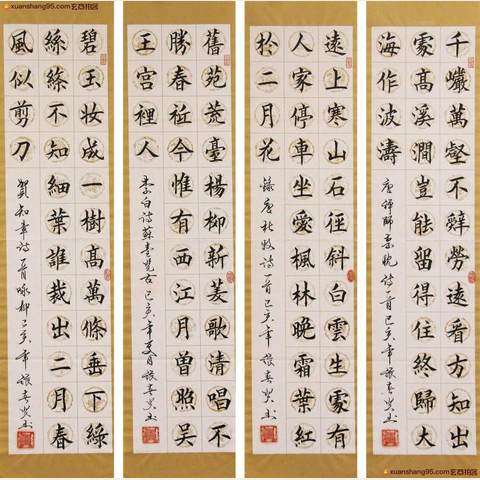 xuanshang95.com
千巖萬壑不辭勞遠看方知出
處高溪澗豈能留得住終歸大
海作波濤
詩一首己亥年
遠上寒山石徑斜白雲生處有
人家停車坐愛楓林晚霜葉紅
於二月花
錄唐杜牧詩一首己亥年
舊苑荒臺楊柳新菱歌清唱不
勝春祗今惟有西江月曾照吳
王宮裡人
李白詩蘇臺覽古己亥年夏月
碧玉妝成一樹高萬條垂下綠
絲絛不知細葉誰裁出二月春
風似剪刀
賀知章詩一首咏柳己亥年
xuanshang95.com